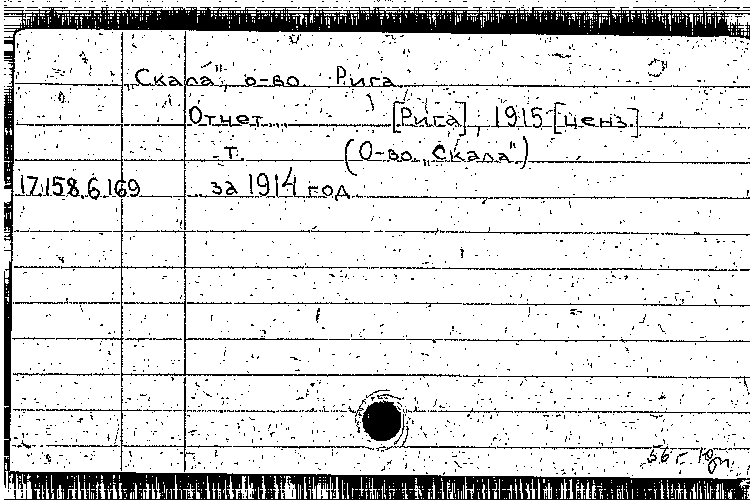 „Скала“, о-во. Рига
Отчет... [Рига], 1915 [ценз.]
-т. (О-во „Скала“)
17.158.6.169 за 1914 год
56 г.